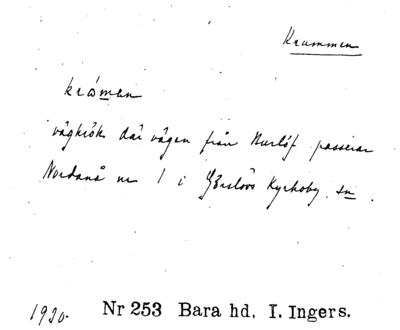 Krummen
krómen
vägkrök där vägen från Burlöf passerar
Nordanå nr 1 i Görslövs Kyrkoby. sn.
1930. Nr 253 Bara hd, I. Ingers.